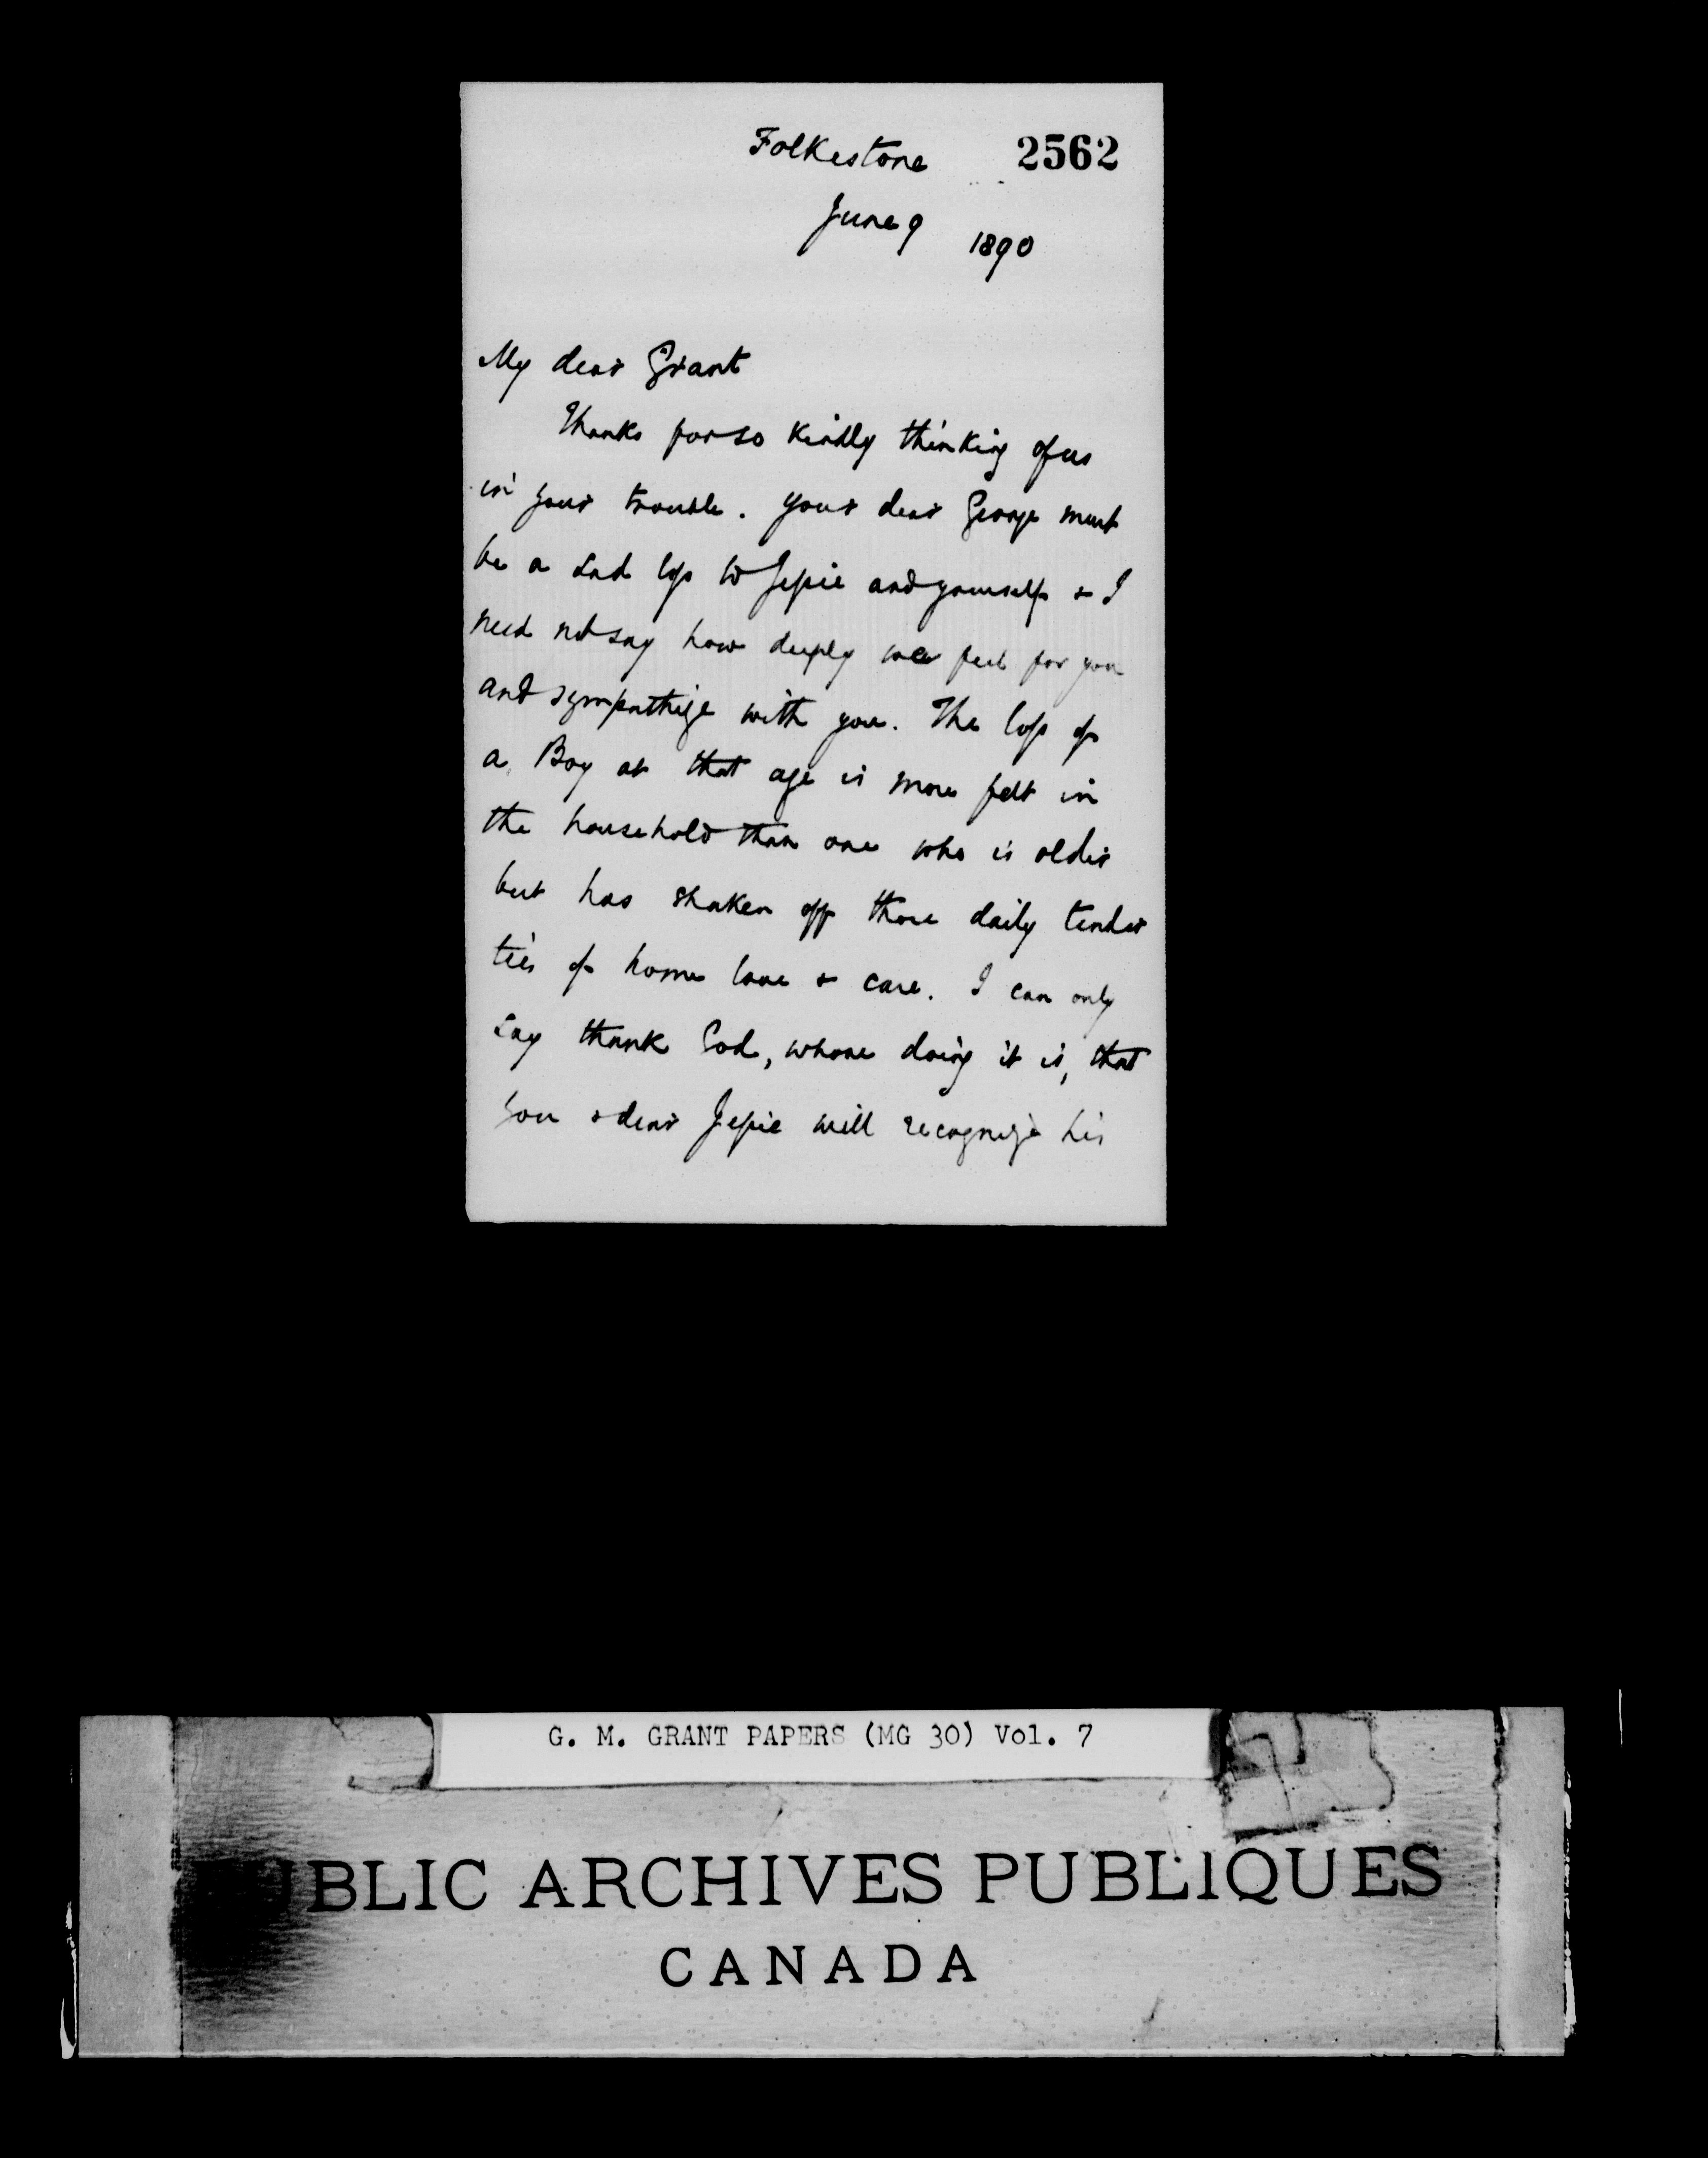 Folkestone 2562
June 9 1890
My dear Grant
Thanks for so kindly thinking of us
in your trouble. Your dear George must
be a sad loss to Jessie and yourself & I
need not say how deeply we feel for you
and sympathize with you. The loss of
a Boy at that age is more felt in
the household than one who is older
but has shaken off those daily tender
ties of home love & care. I can only
say thank God, whose doing it is, that
you & dear Jessie will recognize his
G. M. GRANT PAPERS (MG 30) Vol. 7
PUBLIC ARCHIVES PUBLIQUES
CANADA